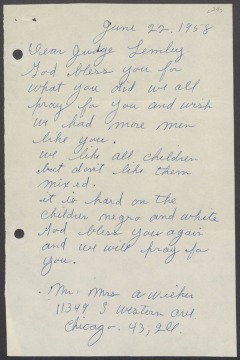 June 22, 1958
Dear Judge Lemley
God bless you for
what you did we all
pray for you and wish
we had more men
like you.
we like all children
but don't like them
mixed.
it is hard on the
children negro and white
God bless you again
and we will pray for
you.
Mr. Mrs a Wicker
11349 S Western ave
Chicago. 43, Ill